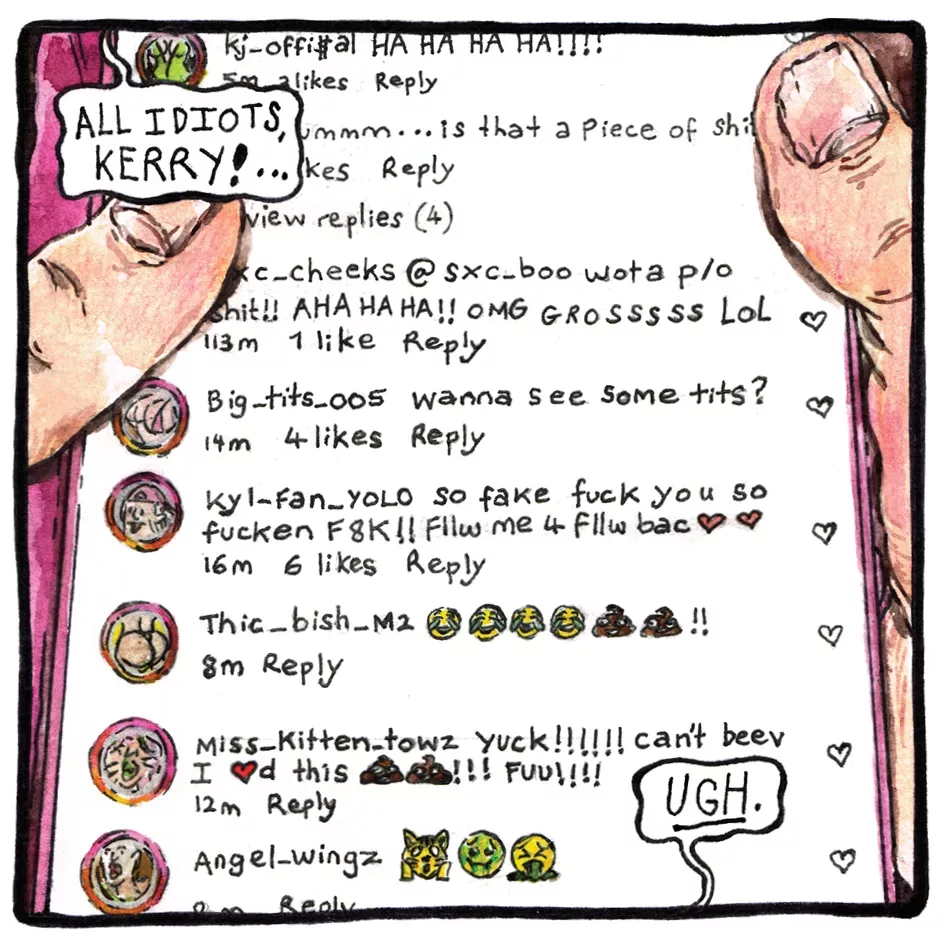 kj-offi$al HA HA HA HA!!!!
5m 2likes Reply
ALL IDIOTS,
KERRY!...
ummm...is that a piece of shit
kes Reply
view replies (4)
xc_cheeks @ sxc_boo wota p/o
shit!! AHA HA HA!! OMG GROSSSSS LOL
113m 1 like Reply
Big_tits_005 wanna see some tits?
14m 4 likes Reply
Kyl-Fan_YOLO so fake fuck you so
fucken F8K!! Fllw me 4 Fllw bac ♥ ♥
16m 6 likes Reply
Thic_bish_M2 😂😂😂😂💩💩!!
8m Reply
Miss_Kitten_towz Yuck!!!!!!! can't beev
I ♥d this 💩💩!!! FUU!!!!
12m Reply
UGH.
Angel_wingz 🙀🤢🤮
Reply